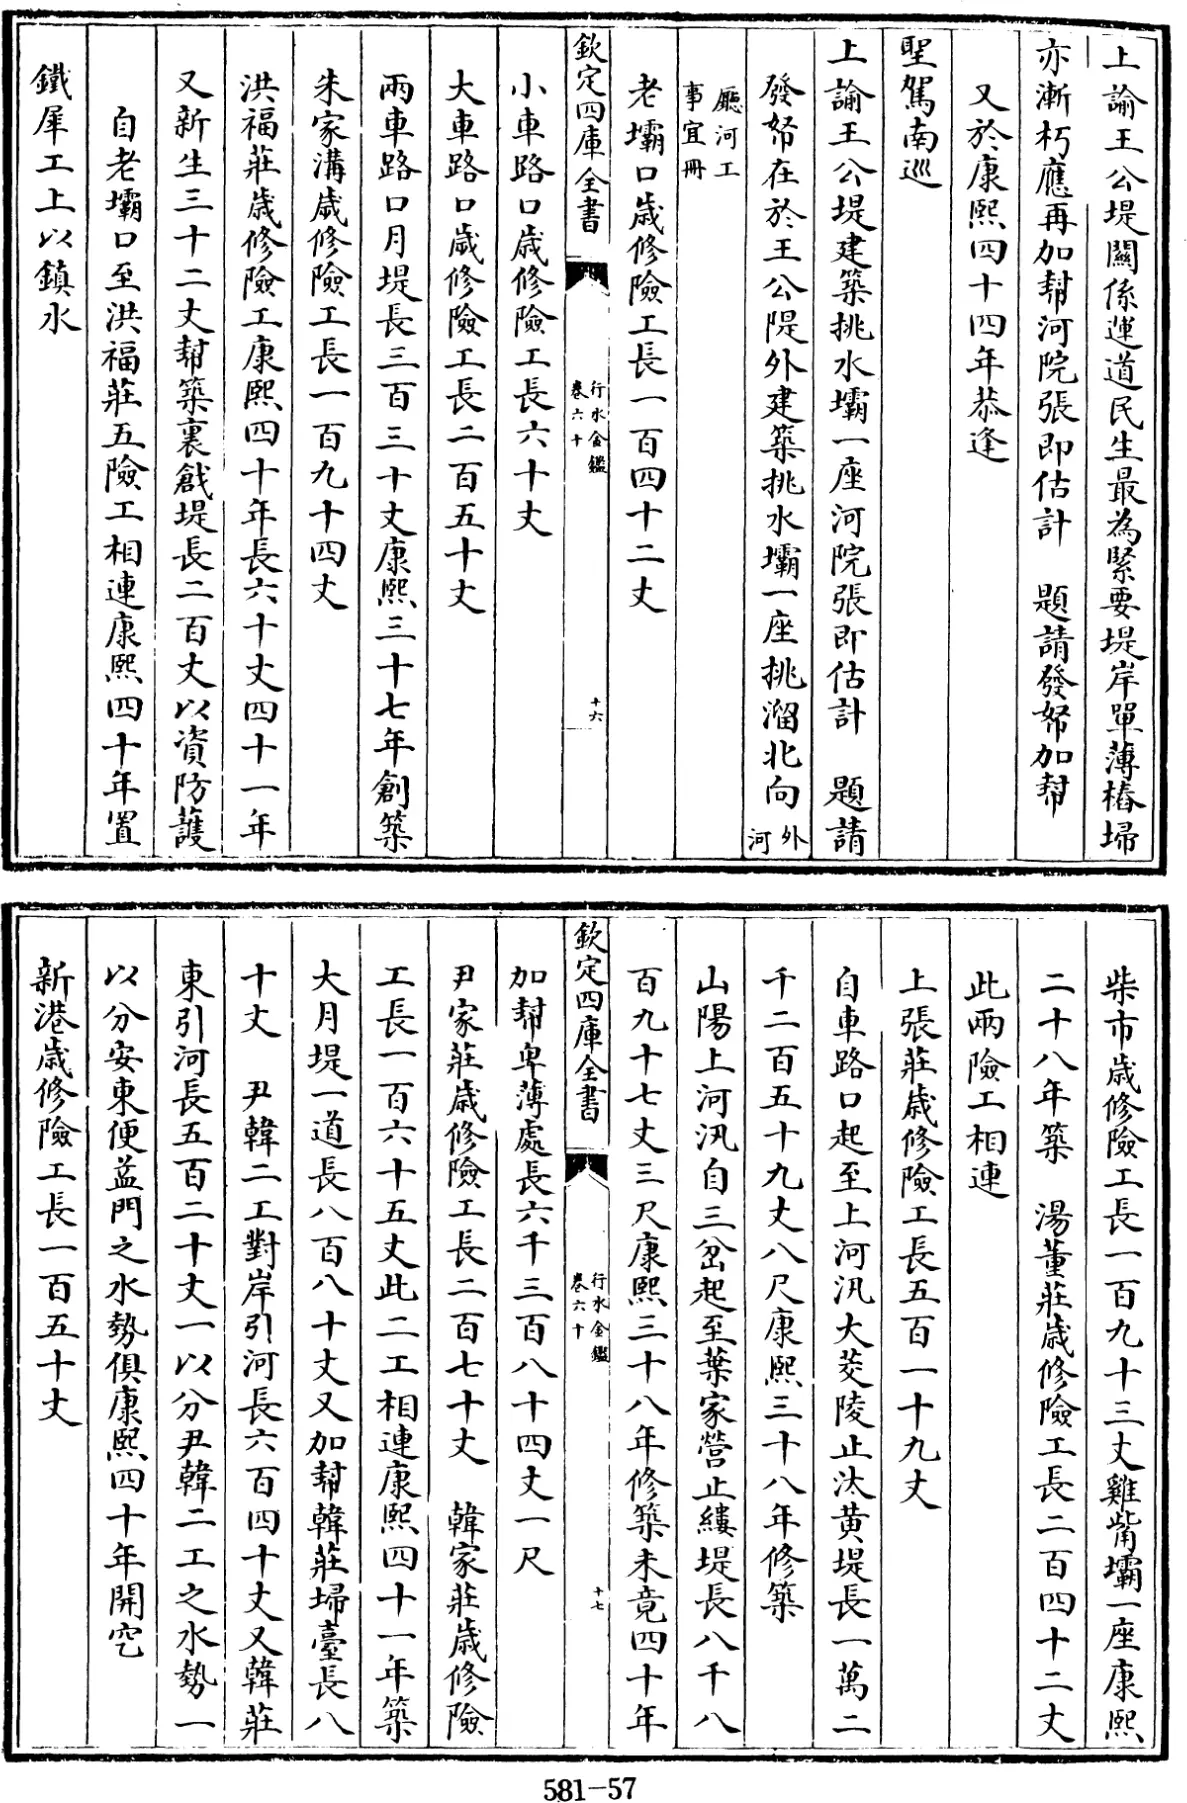 上諭王公堤關係運道民生最為緊要堤岸單薄樁埽
亦漸朽應再加幫河院張即估計　題請發帑加幫
又於康熙四十四年恭逢
聖駕南巡
上諭王公堤建築挑水壩一座河院張即估計　題請
發帑在於王公隄外建築挑水壩一座挑溜北向外河
廳河工事宜冊
老壩口歲修險工長一百四十二丈
欽定四庫全書　行水金鑑卷六十　十六
小車路口歲修險工長六十丈
大車路口歲修險工長二百五十丈
兩車路口月堤長三百三十丈康熙三十七年創築
朱家溝歲修險工長一百九十四丈
洪福莊歲修險工康熙四十年長六十丈四十一年
又新生三十二丈幫築裏戧堤長二百丈以資防護
自老壩口至洪福莊五險工相連康熙四十年置
鐵犀工上以鎮水
柴市歲修險工長一百九十三丈雞嘴壩一座康熙
二十八年築　湯董莊歲修險工長二百四十二丈
此兩險工相連
上張莊歲修險工長五百一十九丈
自車路口起至上河汛大茭陵止汰黄堤長一萬二
千二百五十九丈八尺康熙三十八年修築
山陽上河汛自三岔起至葉家營止縷堤長八千八
百九十七丈三尺康熙三十八年修築未竟四十年
欽定四庫全書　行水金鑑卷六十　十七
加幫卑薄處長六千三百八十四丈一尺
尹家莊歲修險工長二百七十丈　韓家莊歲修險
工長一百六十五丈此二工相連康熙四十一年築
大月堤一道長八百八十丈又加幫韓莊埽臺長八
十丈　尹韓二工對岸引河長六百四十丈又韓莊
東引河長五百二十丈一以分尹韓二工之水勢一
以分安東便益門之水勢俱康熙四十年開空
新港歲修險工長一百五十丈
581-57